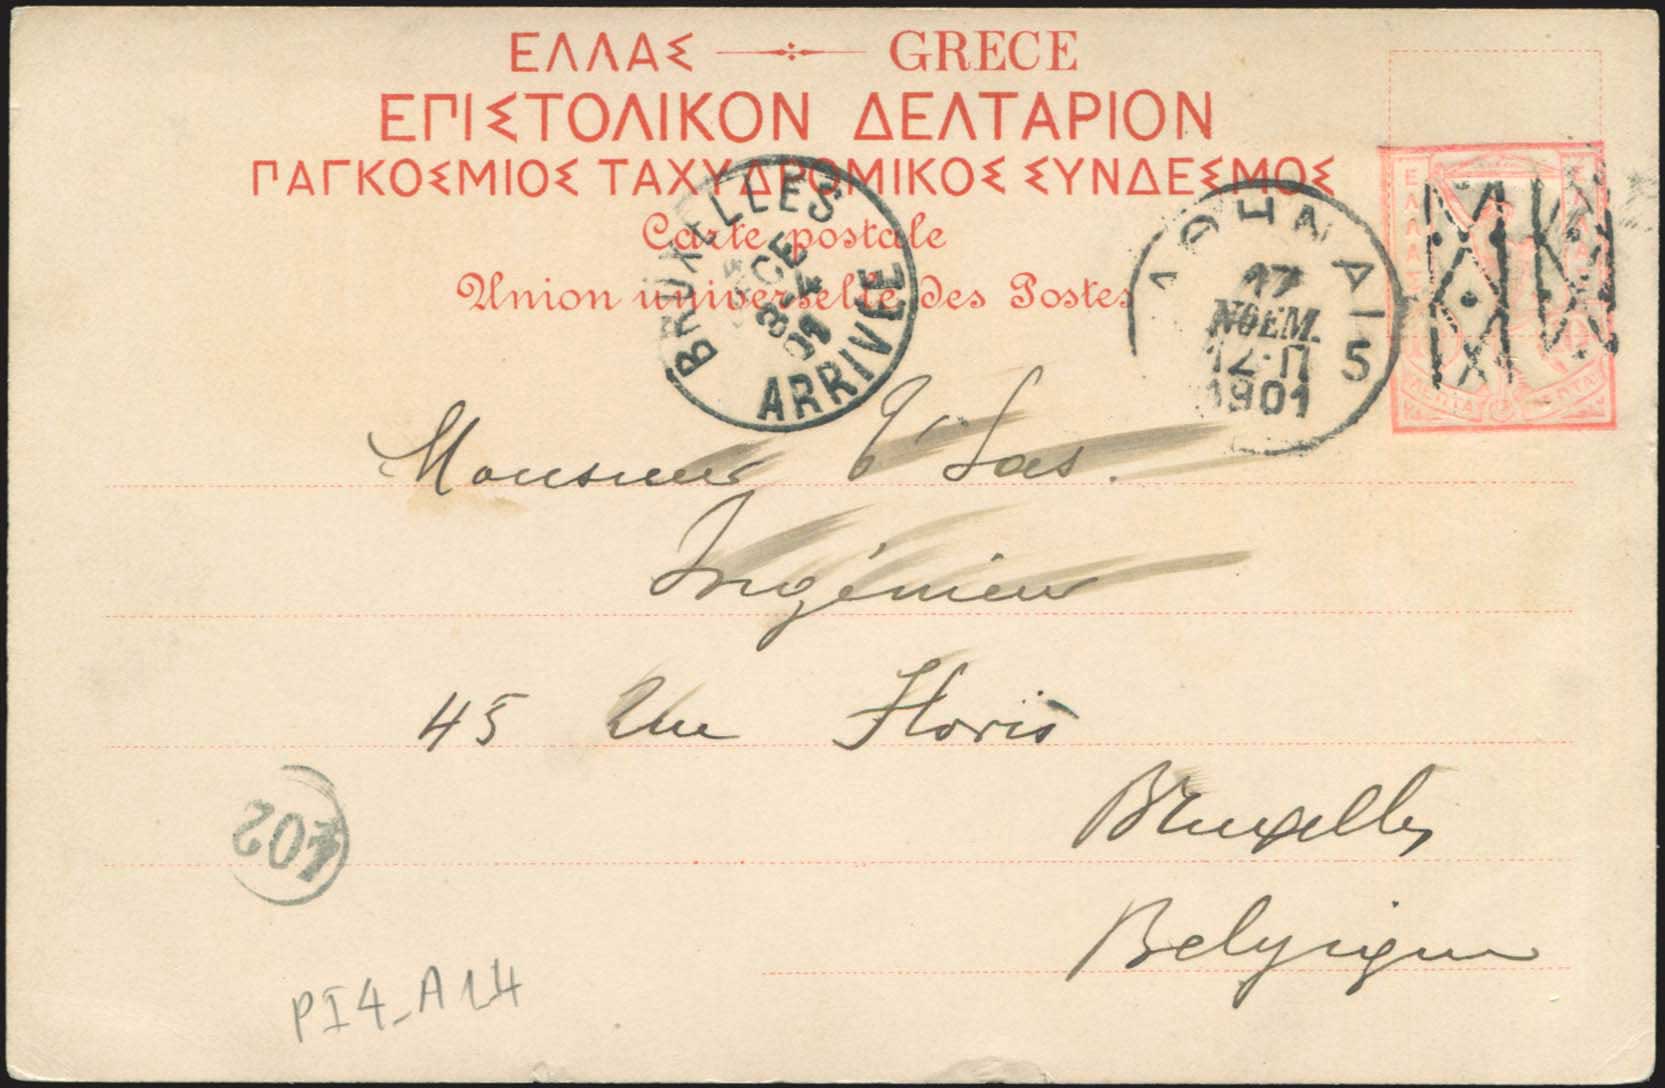 ΕΛΛΑΣ GRECE
ΕΠΙΣΤΟΛΙΚΟΝ ΔΕΛΤΑΡΙΟΝ
ΠΑΓΚΟΣΜΙΟΣ ΤΑΧΥΔΡΟΜΙΚΟΣ ΣΥΝΔΕΣΜΟΣ
Carte postale
Union universelle des Postes
BRUXELLES
DECE
01
ARRIVÉE
ΑΘΗΝΑΙ 5
17
ΝΟΕΜ.
12·Π
1901
ΕΛΛΑΣ
ΛΕΠΤΑ
Monsieur Las.
Ingénieur
45 Rue Floris
Bruxelles
Belgique
PI4_A14